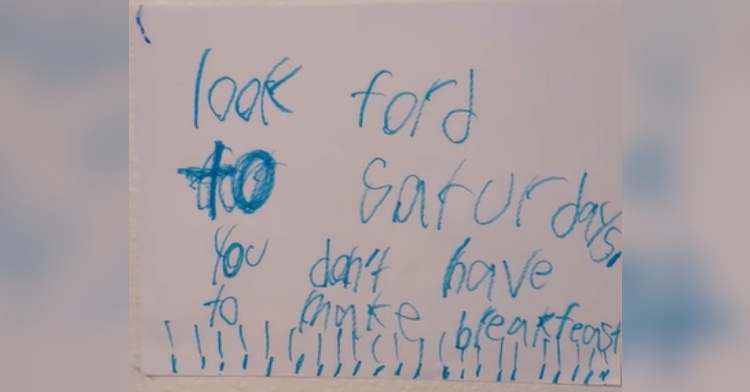 look ford
to saturdays.
You don't have
to make breakfeast
!!!!!!!!!!!!!!!!!!!!!!